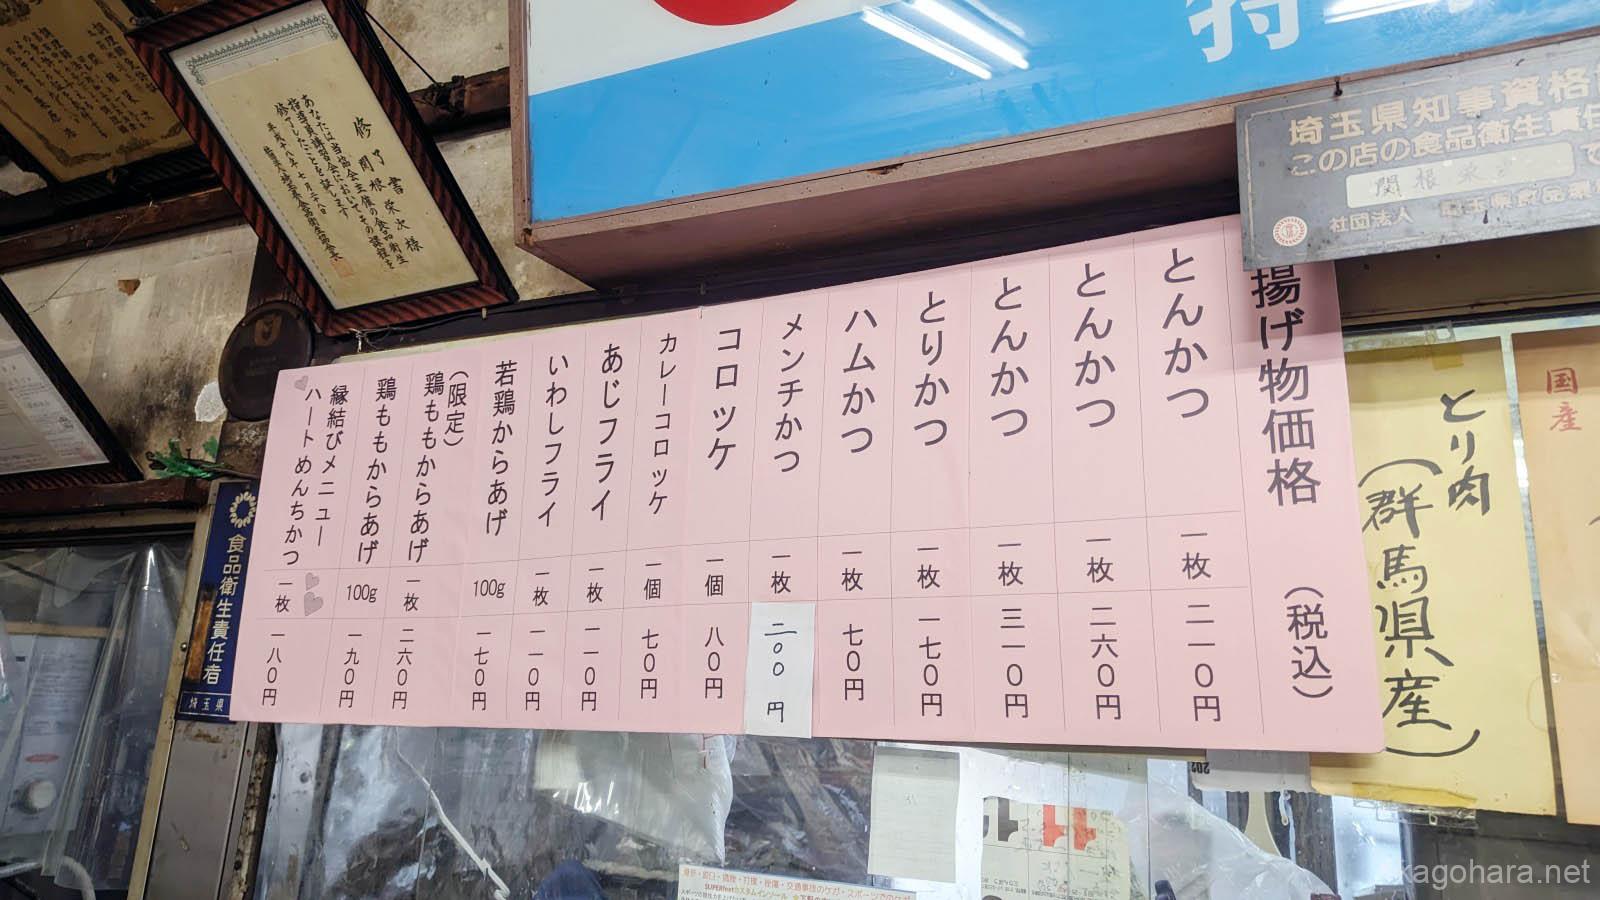 揚げ物価格 (税込)
とんかつ 一枚 二一〇円
とんかつ 一枚 二六〇円
とんかつ 一枚 三一〇円
とりかつ 一枚 一七〇円
ハムかつ 一枚 七〇円
メンチかつ 一枚 二〇〇円
コロッケ 一個 八〇円
カレーコロッケ 一個 七〇円
あじフライ 一枚 一一〇円
いわしフライ 一枚 一一〇円
若鶏からあげ 100g 一七〇円
(限定)
鶏ももからあげ 一枚 二六〇円
鶏ももからあげ 100g 一九〇円
縁結びメニュー
ハートめんちかつ 一枚 一八〇円
埼玉県知事資格
この店の食品衛生責任
関根栄
社団法人 埼玉県食品
とり肉
(群馬県産)
国産
修了書
関根栄次様
あなたは当協会主催の食品衛生
指導員講習会においてその課程を
修了したことを証します
平成十八年七月二十八日
食品衛生責任者
埼玉県
SUPERfeetカスタムインソール
kagohara.net